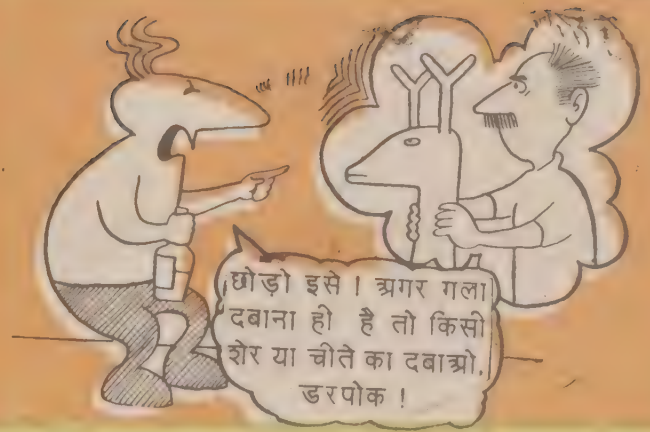 छोड़ो इसे। अगर गला
दबाना ही है तो किसी
शेर या चीते का दबाओ.
डरपोक !